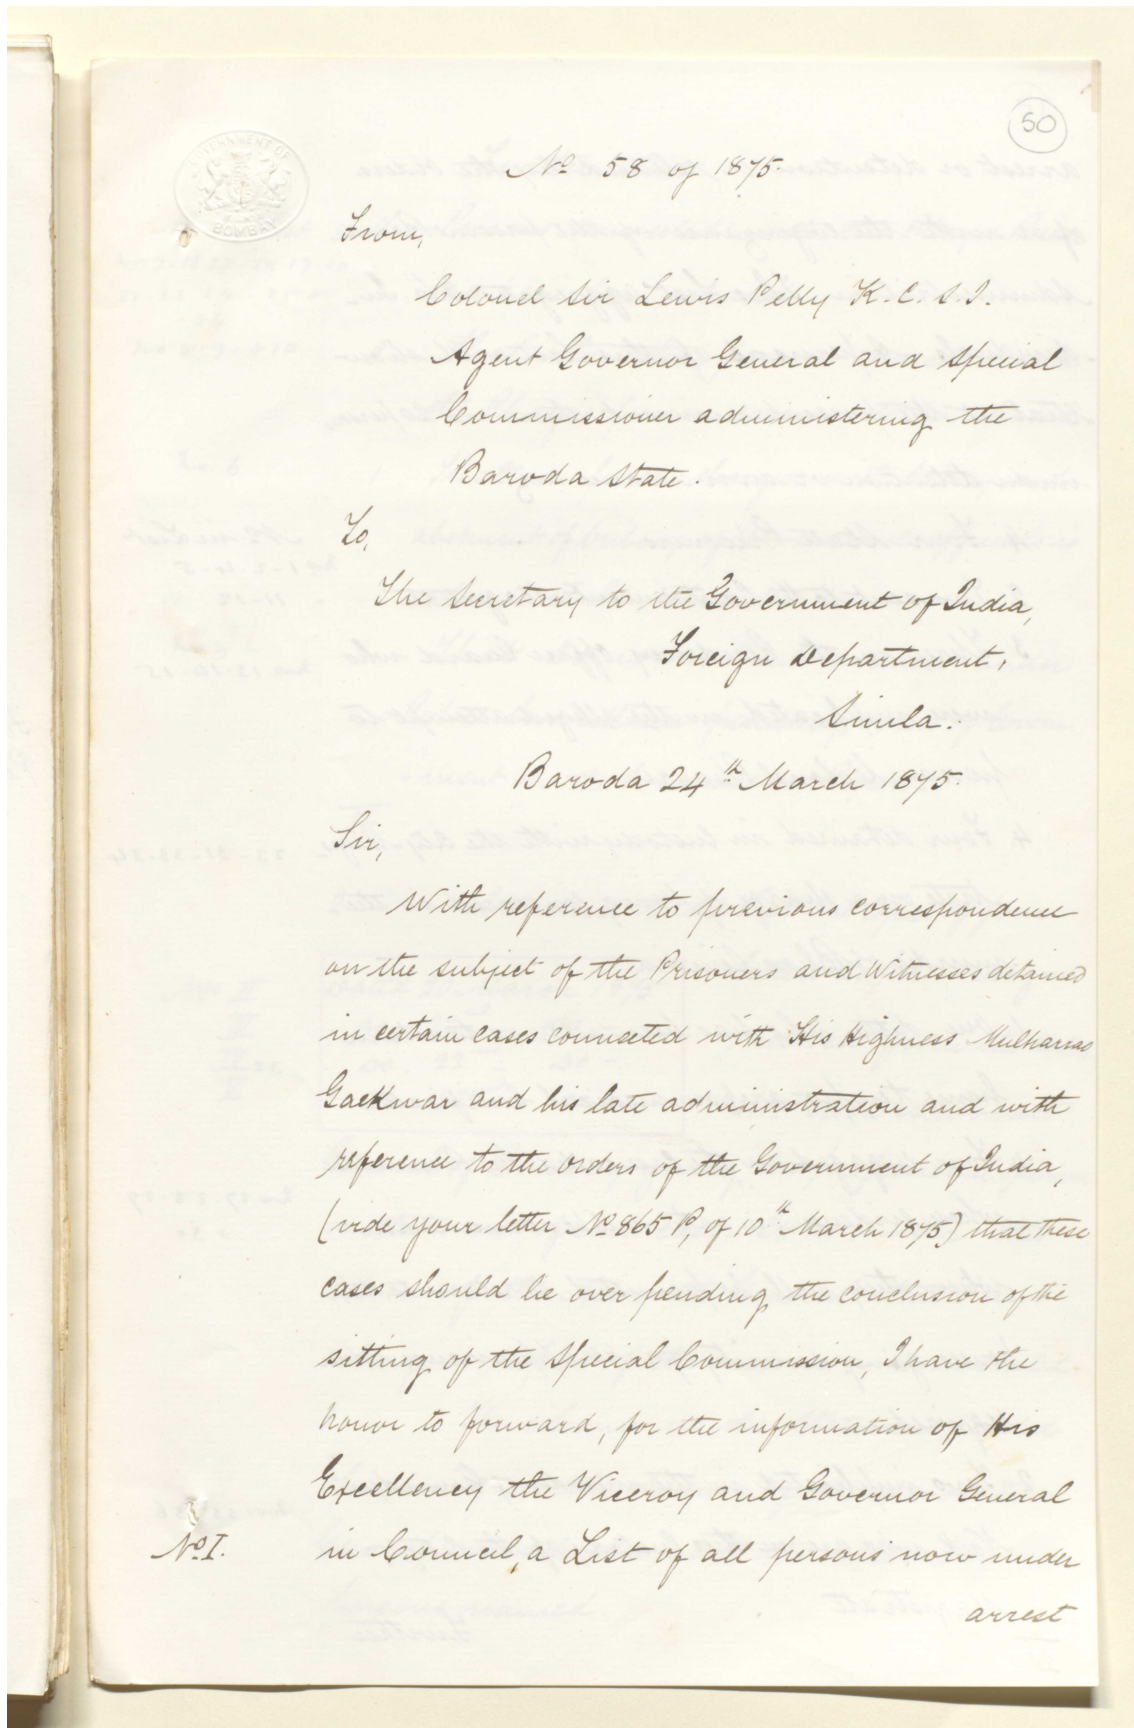 50
GOVERNMENT OF
BOMBAY
No 58 of 1875.
From,
Colonel Sir Lewis Pelly K.C.S.I.
Agent Governor General and Special
Commissioner administering the
Baroda State.
To,
The Secretary to the Government of India,
Foreign Department,
Simla.
Baroda 24th March 1875.
Sir,
With reference to previous correspondence
on the subject of the Prisoners and Witnesses detained
in certain cases connected with His Highness Mulharrao
Gaekwar and his late administration and with
reference to the orders of the Government of India,
(vide your letter No 865 P, of 10th March 1875) that these
cases should lie over pending the conclusion of the
sitting of the Special Commission, I have the
honor to forward, for the information of His
Excellency the Viceroy and Governor General
No I. in Council, a List of all persons now under
arrest